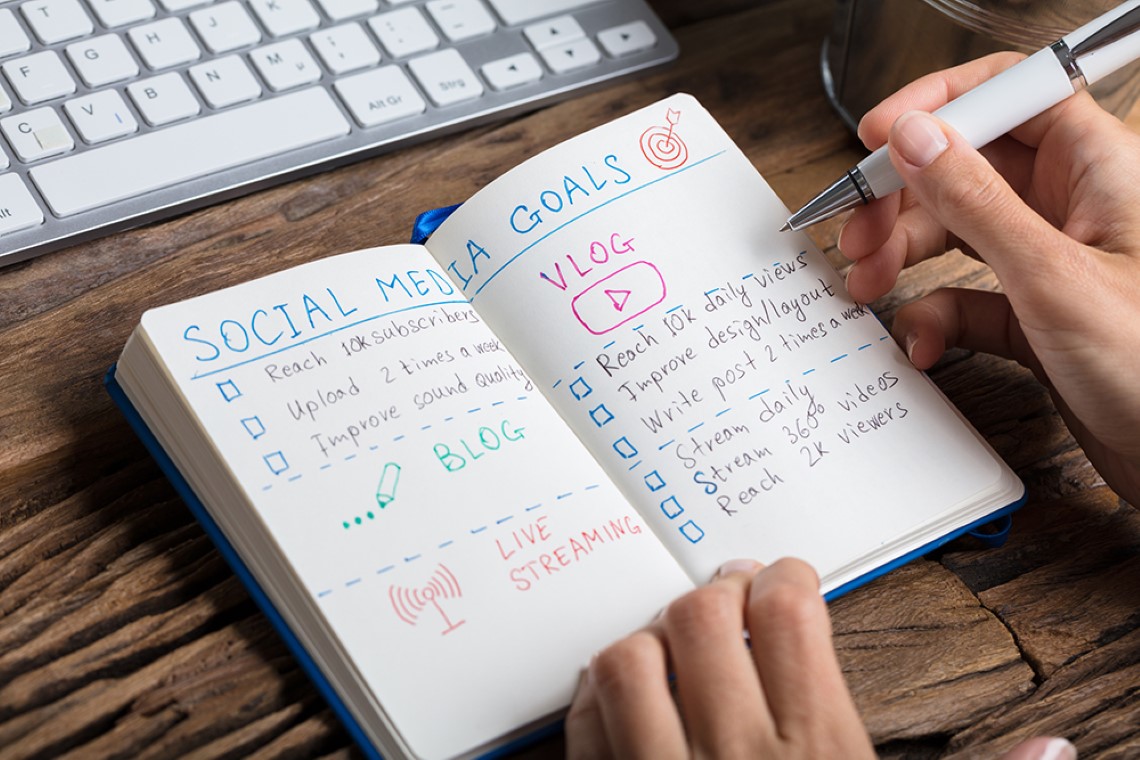 F G H J K
C V B N M µ
Alt Gr Strg
SOCIAL MEDIA GOALS
Reach 10k subscribers
Upload 2 times a week
Improve sound quality
BLOG
LIVE
STREAMING
VLOG
Reach 10k daily views
Improve design/layout
Write post 2 times a week
Stream daily
Stream 360° videos
Reach 2k viewers